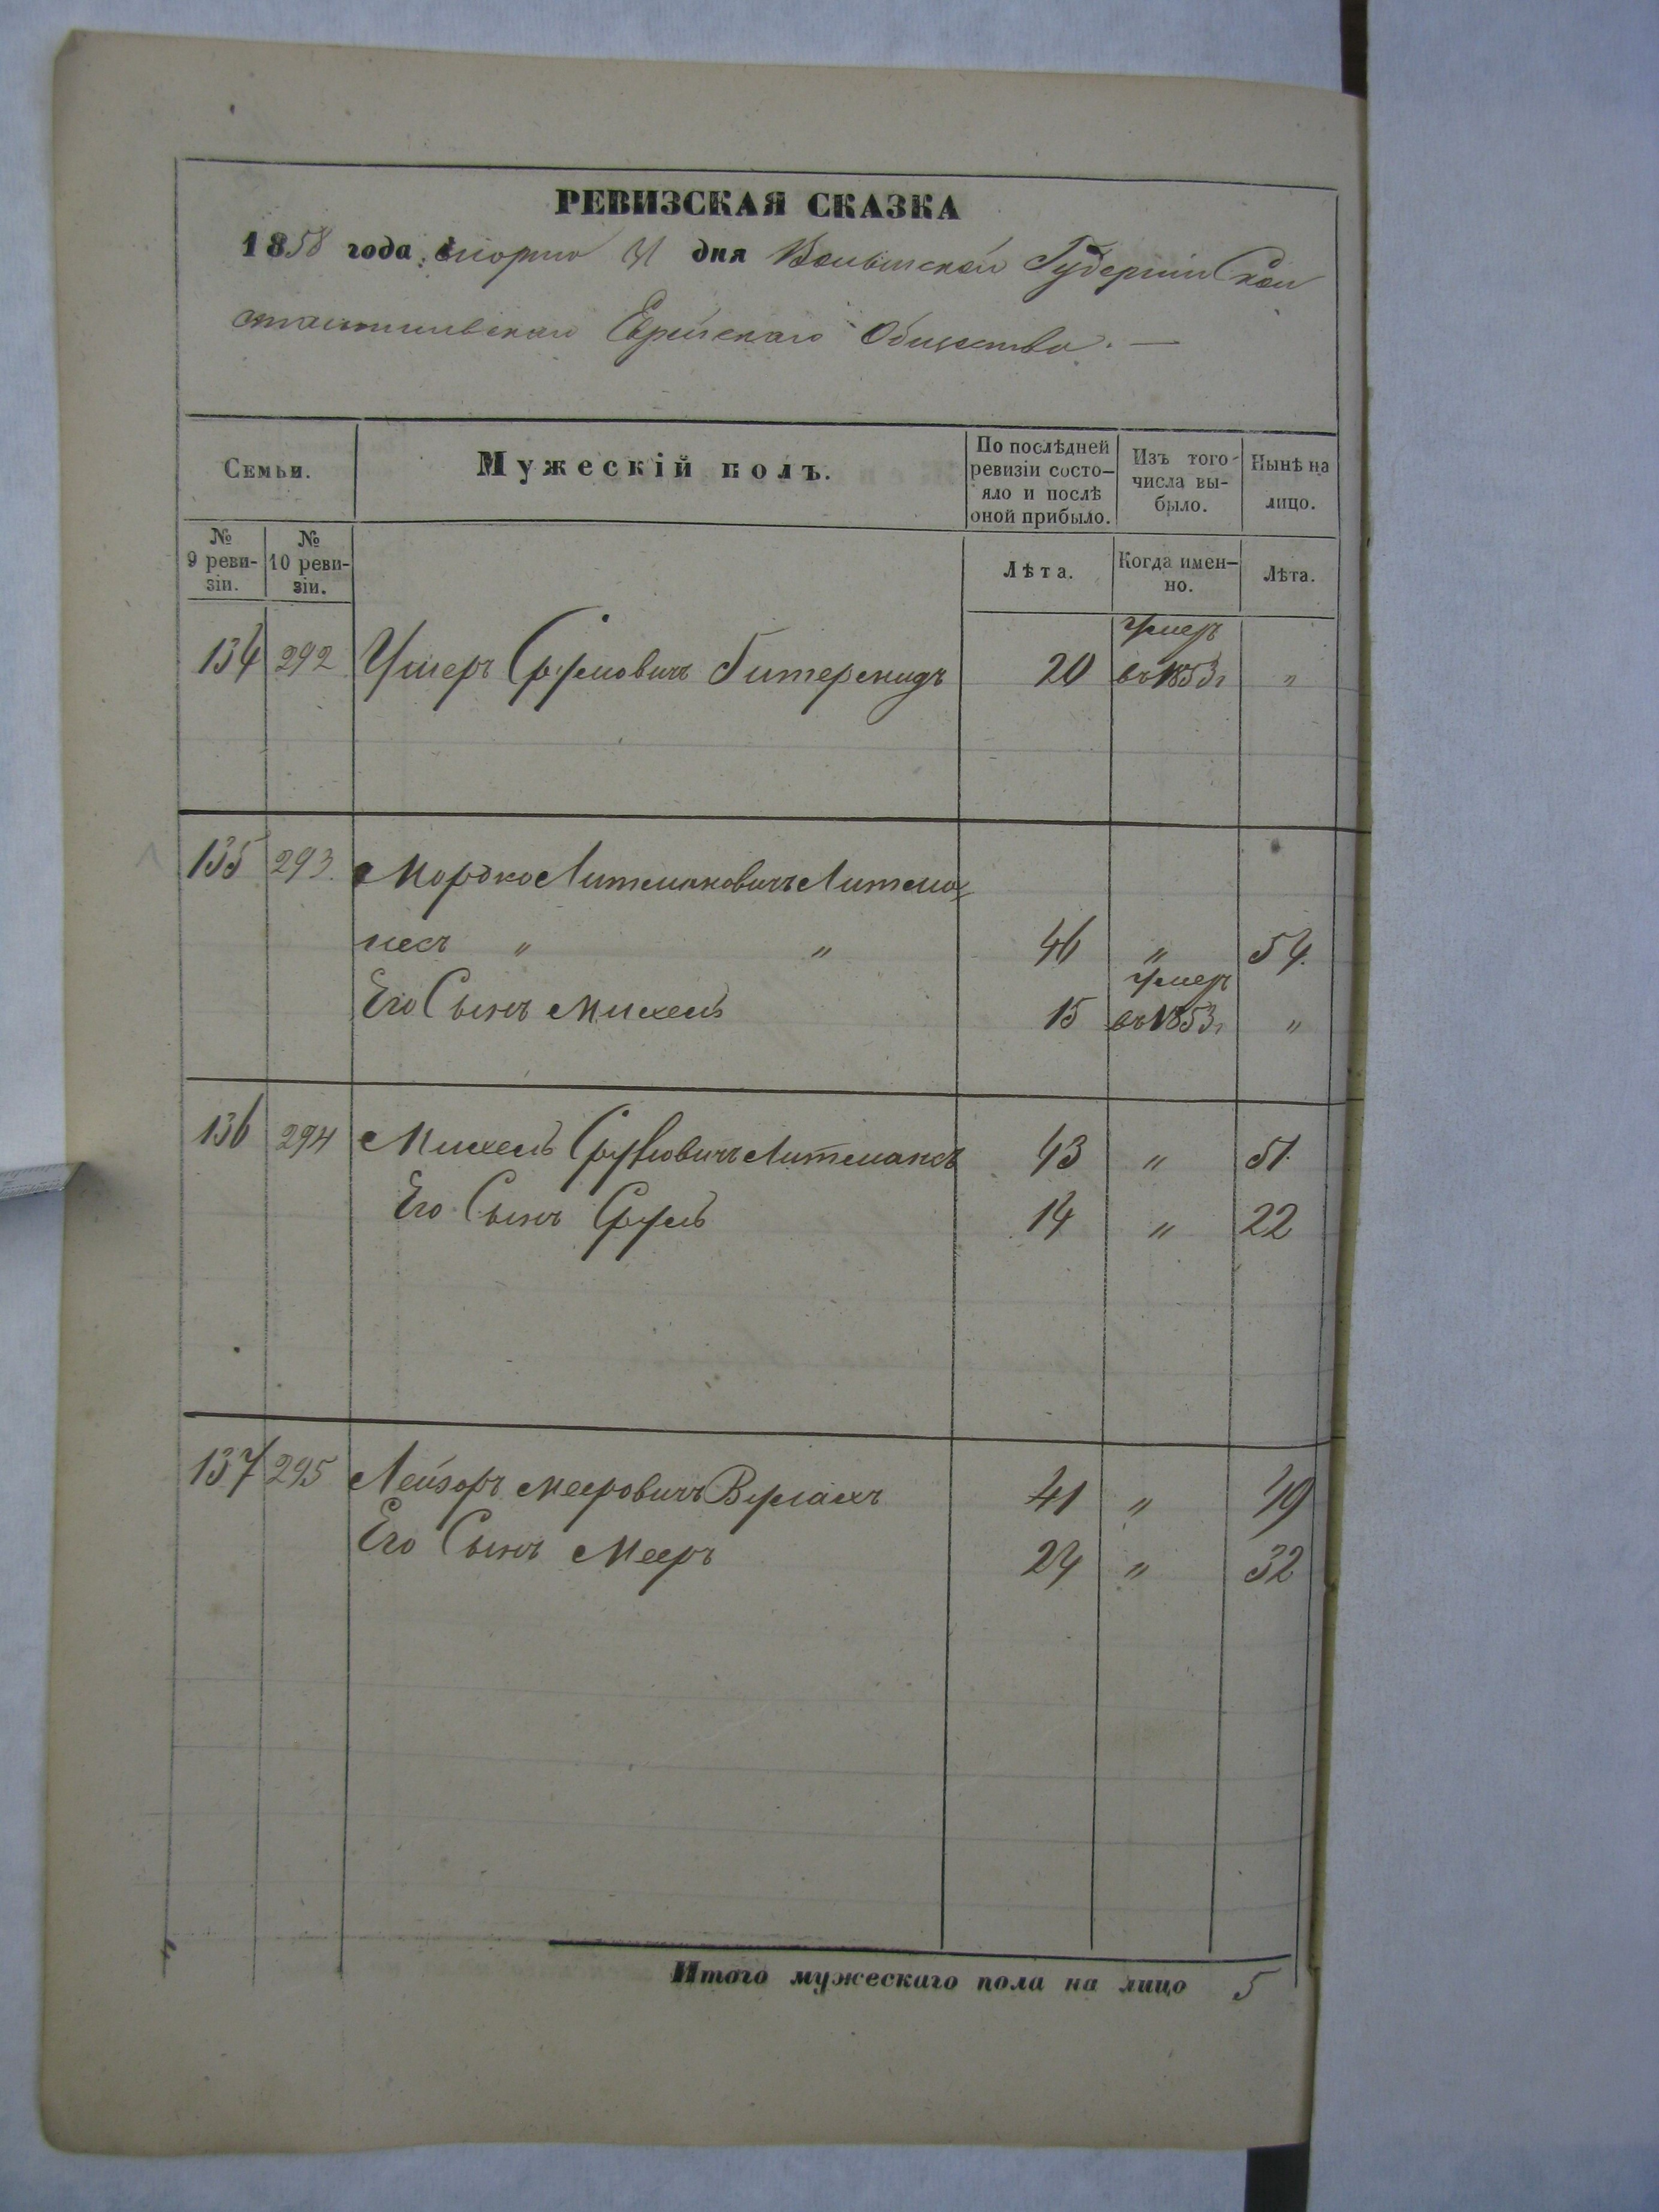 РЕВИЗСКАЯ СКАЗКА
1858 года: Марта 31 дня Волынской Губерніи Старокон
стантиновскаго Еврейскаго Общества. —
Семьи.
Мужескій полъ.
По послѣдней ревизіи состо-яло и послѣ оной прибыло.
Изъ того числа вы-было.
Нынѣ на лицо.
№ 9 реви-зіи.
№ 10 реви-зіи.
Лѣта.
Когда имен-но.
Лѣта.
134 292 Ушеръ Сруловичъ 20 Умеръ въ 1853 г "
135 293. Мордко Литмановичъ Литма=
несъ " " 46 " 54.
Его Сынъ Михель 15 Умеръ въ 1853 г "
136 294 Михель Сруловичъ Литманесъ 43 " 51.
Его Сынъ Сруль 14 " 22
137 295 Лейзоръ Мееровичъ 41 " 49
Его Сынъ Мееръ 24 " 32
Итого мужескаго пола на лицо 5